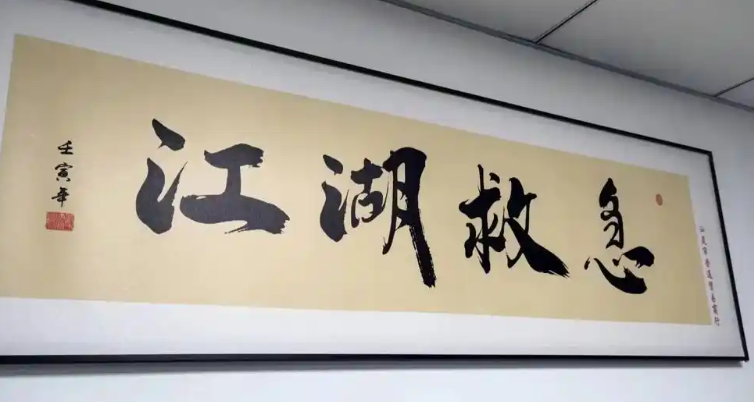 江湖救急
壬寅年